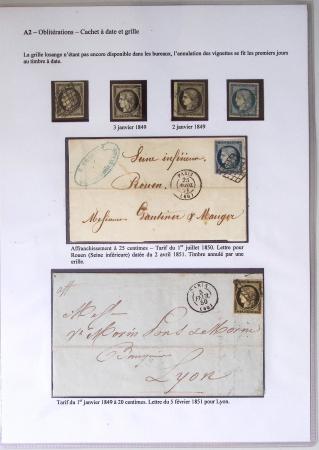 A2 – Oblitérations – Cachet à date et grille
La grille losange n'étant pas encore disponible dans les bureaux, l'annulation des vignettes se fit les premiers jours
au timbre à date.
3 janvier 1849
2 janvier 1849
Seine inférieure,
Rouen
PARIS
(60)
Messieurs
Affranchissement à 25 centimes – Tarif du 1er juillet 1850. Lettre pour
Rouen (Seine inférieure) datée du 2 avril 1851. Timbre annulé par une
grille.
aff
PARIS
5
50
(60)
Lyon
Tarif du 1er janvier 1849 à 20 centimes. Lettre du 5 février 1851 pour Lyon.